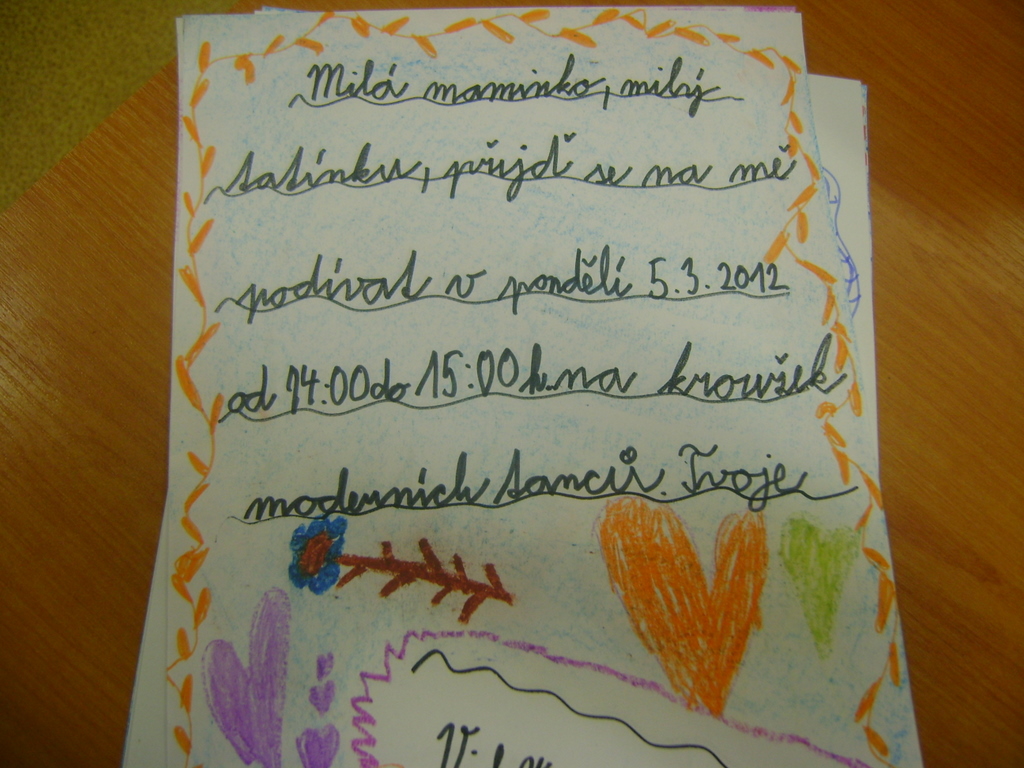 Milá maminko, milý
tatínku, přijď se na mě
podívat v pondělí 5.3.2012
od 14:00 do 15:00 h. na kroužek
moderních tanců. Tvoje